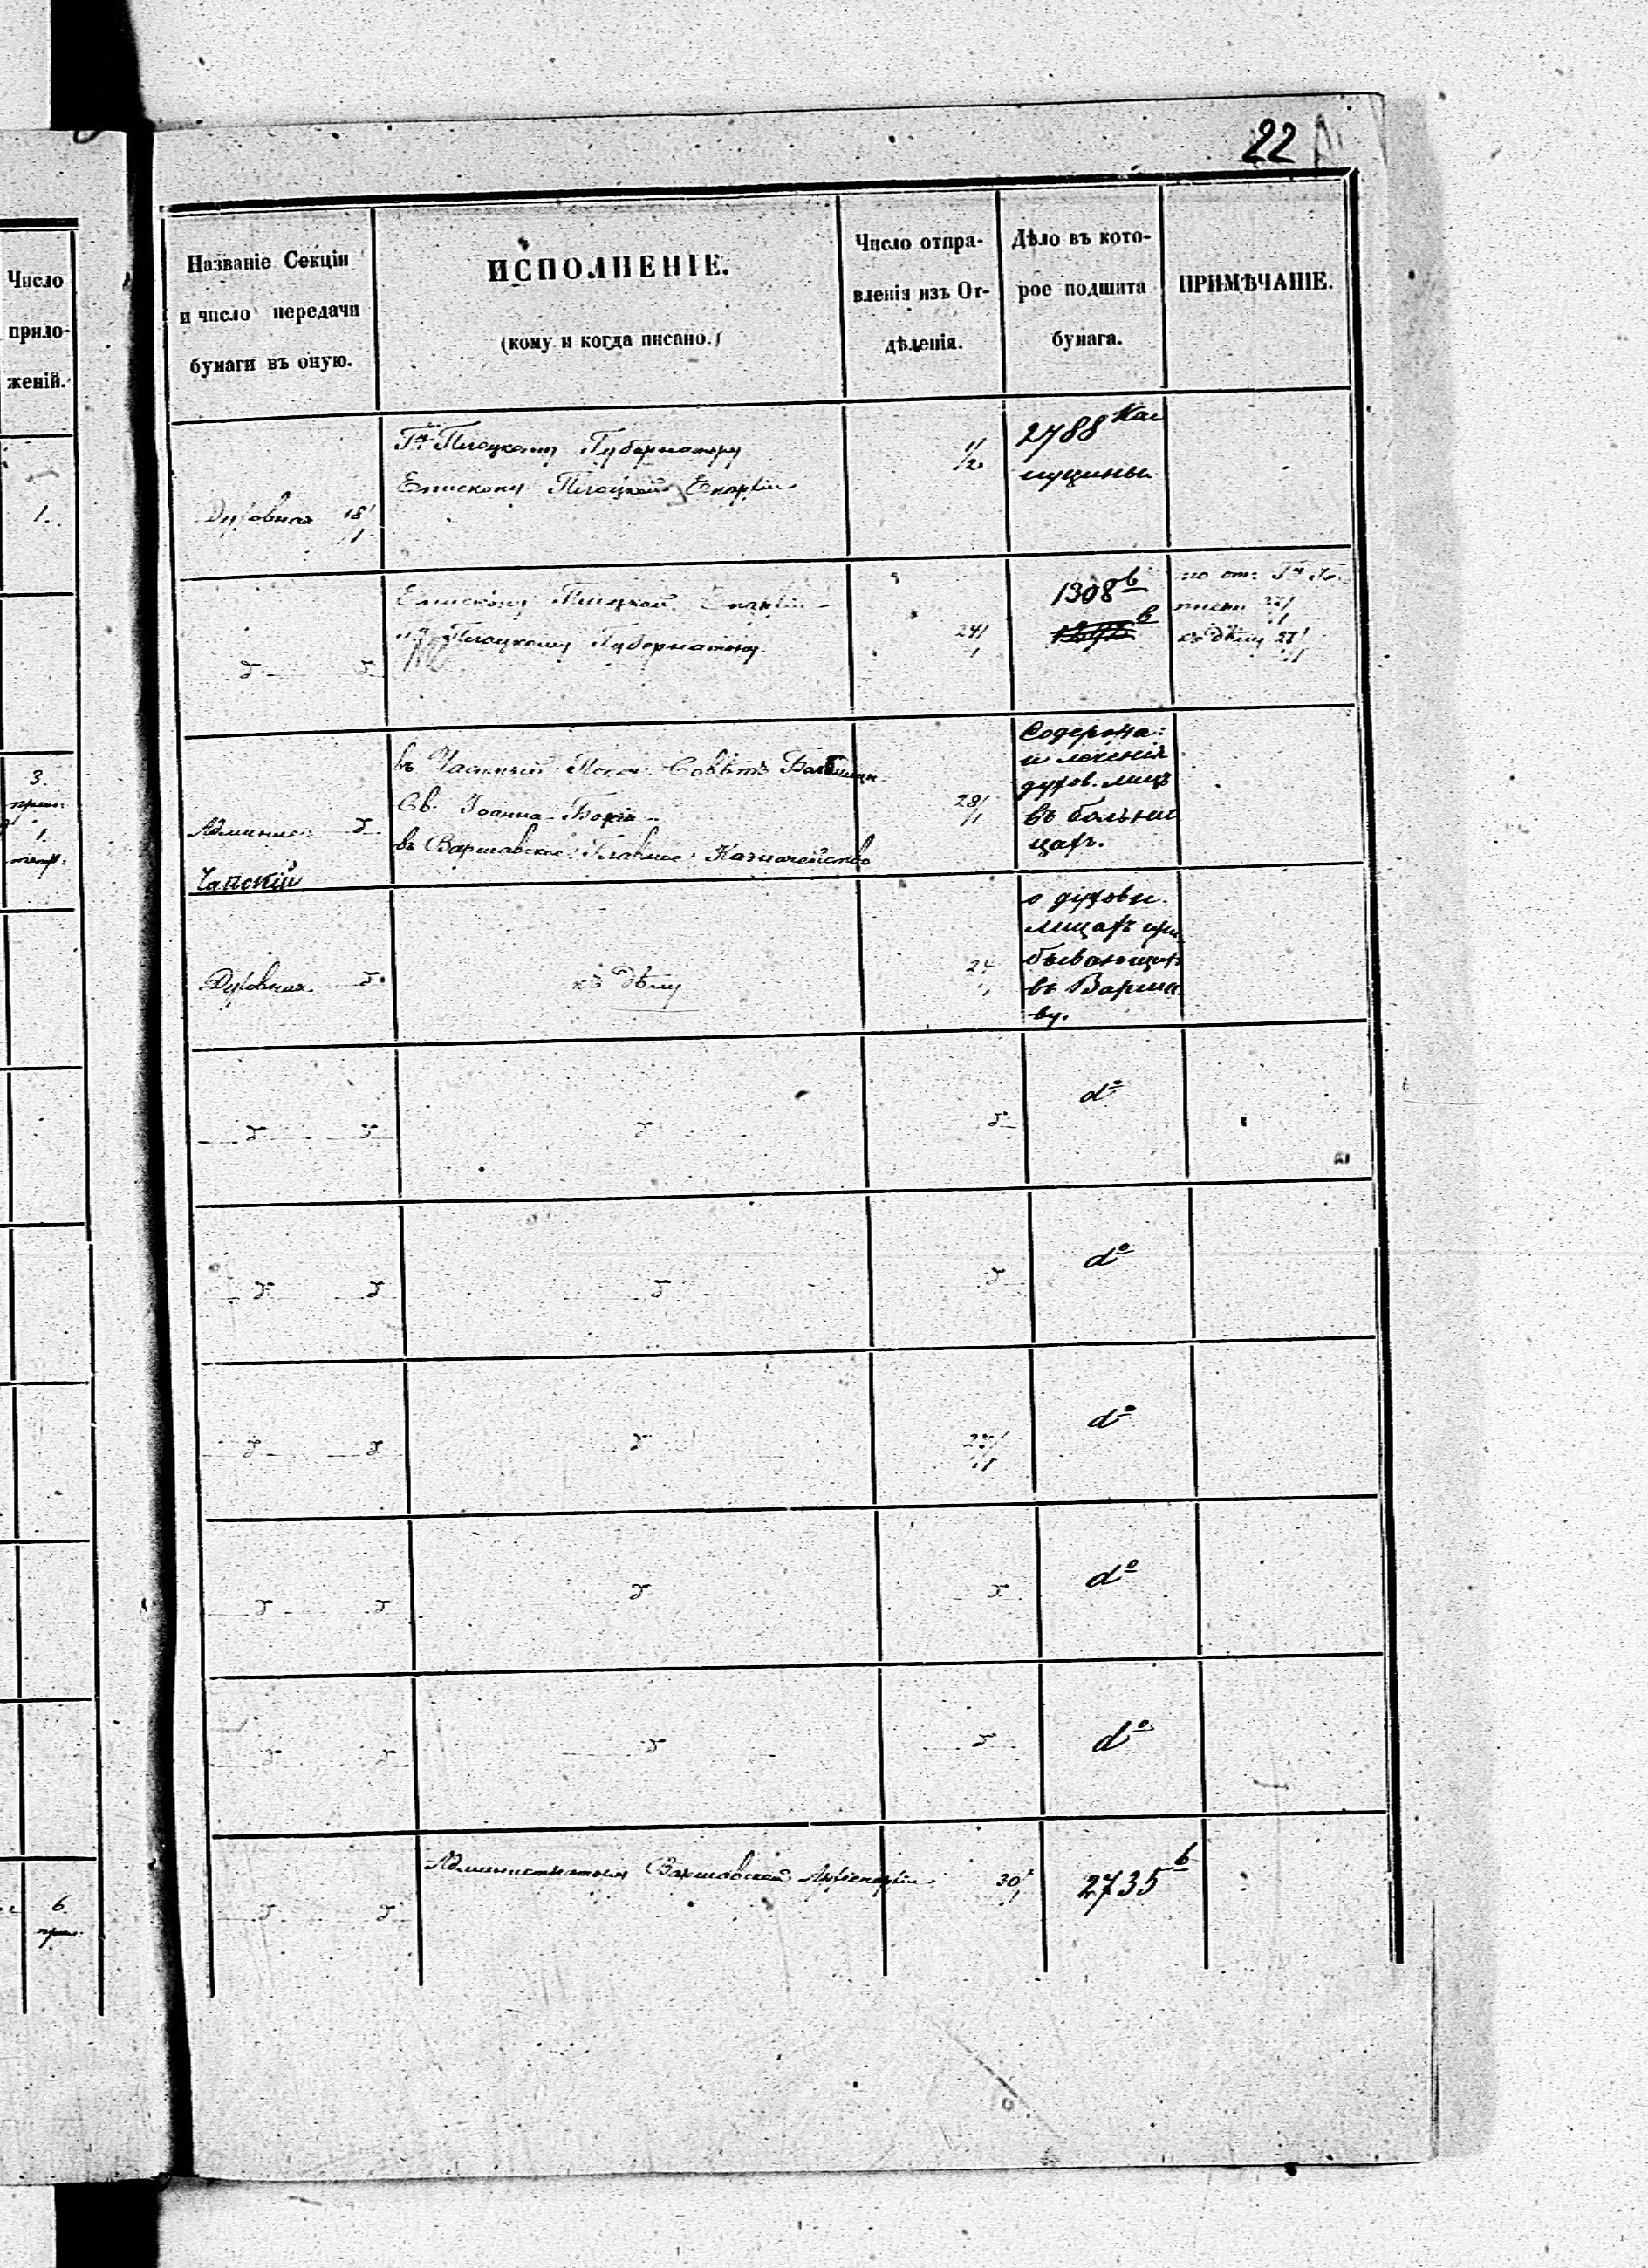 22
Число
прило-
женій.
1.
3.
1.
6.
Названіе Секціи
и число передачи
бумаги въ оную.
ИСПОЛНЕНІЕ.
(кому и когда писано.)
Число отпра-
вленія изъ От-
дѣленія.
Дѣло въ кото-
рое подшита
бумага.
ПРИМѢЧАНІЕ.
Духовная 18/1
Гну Плоцкому Губернатору
Епископу Плоцкой Епархіи
1/2
2788 Кан
цущины
Епископу Плоцкой Епархіи
Плоцкому Губернатору
24/1
1308 b
къ дѣлу 27/1
Админис: d
Чапскій
въ Частный Попеч. Совѣтъ Больницы
Св. Іоанна Божія
въ Варшавское Главное Казначейство
28/1
Содержа:
и леченія
духов. лицъ
въ больни
цахъ.
Духовная d
къ дѣлу
24/1
о духовн.
лицахъ при
бывающихъ
въ Варша
ву.
d d
d
d
dº
d d
d
d
dº
d d
d
27/1
dº
d d
d
d
dº
d d
d
d
dº
d d
Администратору Варшавской Архіепархіи
30/1
2735 b